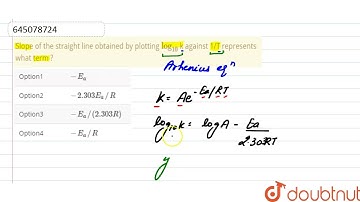 645078724
Slope of the straight line obtained by plotting log₁₀ k against 1/T represents
what term ?
Option1 −Eₐ
Option2 −2.303Eₐ/R
Option3 −Eₐ/(2.303R)
Option4 −Eₐ/R
Arhenius eqⁿ
K = Ae^(-Ea/RT)
log₁₀K = logA - Ea/2.303RT
y
doubtnut